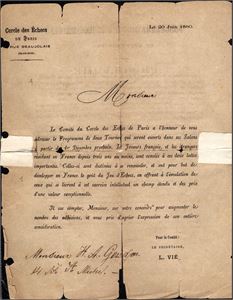 Cercle des Échecs
DE PARIS
RUE BEAUJOLAIS
Le 20 Juin 1880.
Monsieur
Le Comité du Cercle des Échecs de Paris a l'honneur de vous
adresser le Programme de deux Tournois qui seront ouverts dans ses Salons
à partir du Décembre prochain. Les Joueurs français, et les étrangers
résidant en France depuis trois ans au moins, sont conviés à ces luttes
importantes. Celles-ci sont destinées à
développer en France le goût du Jeu d'Échecs, en offrant à l'émulation de
ceux qui s'y livrent à un intellectuel un champ étendu et des prix
d'une valeur exceptionnelle.
Il ose compter, Monsieur, sur votre concours pour augmenter le
nombre des adhésions, et vous prie d'agréer l'expression de son entière
considération.
Pour le Comité :
LE SECRÉTAIRE,
L. VIÉ,
Monsieur H. A.